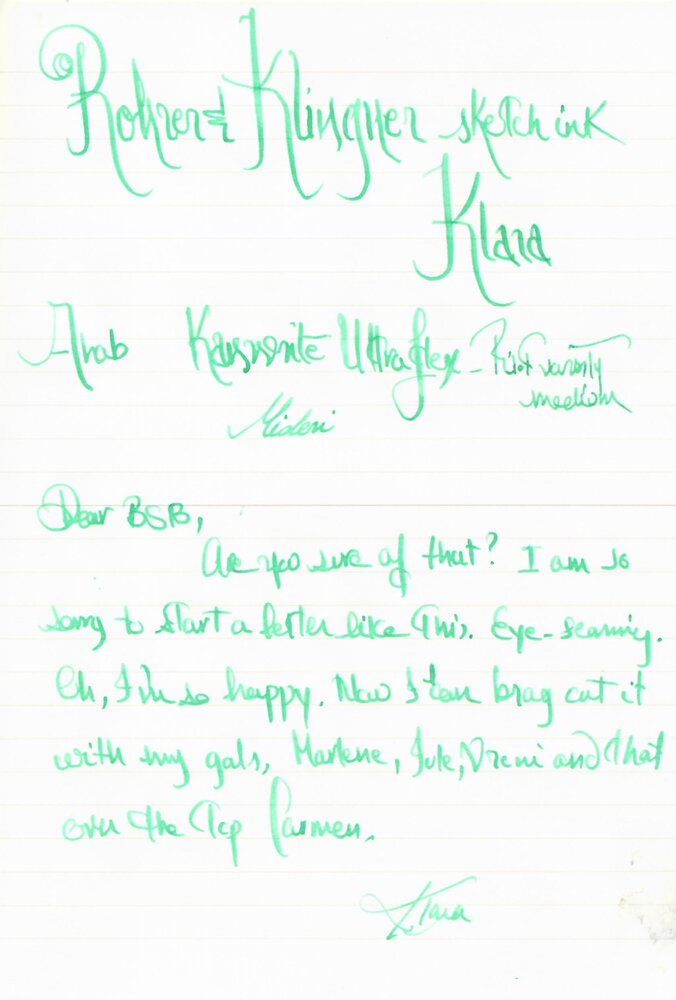 Rohrer & Klingner sketch ink
Klara
Ahab Kanwrite Ultra flex - Pilot varsity
medium
Midori
Dear BSB,
Are you sure of that? I am so
sorry to start a letter like this. Eye-searing.
Oh, I'm so happy. Now I can brag about it
with my gals, Marlene, Jule, Vreni and that
over the Top Carmen.
Klara